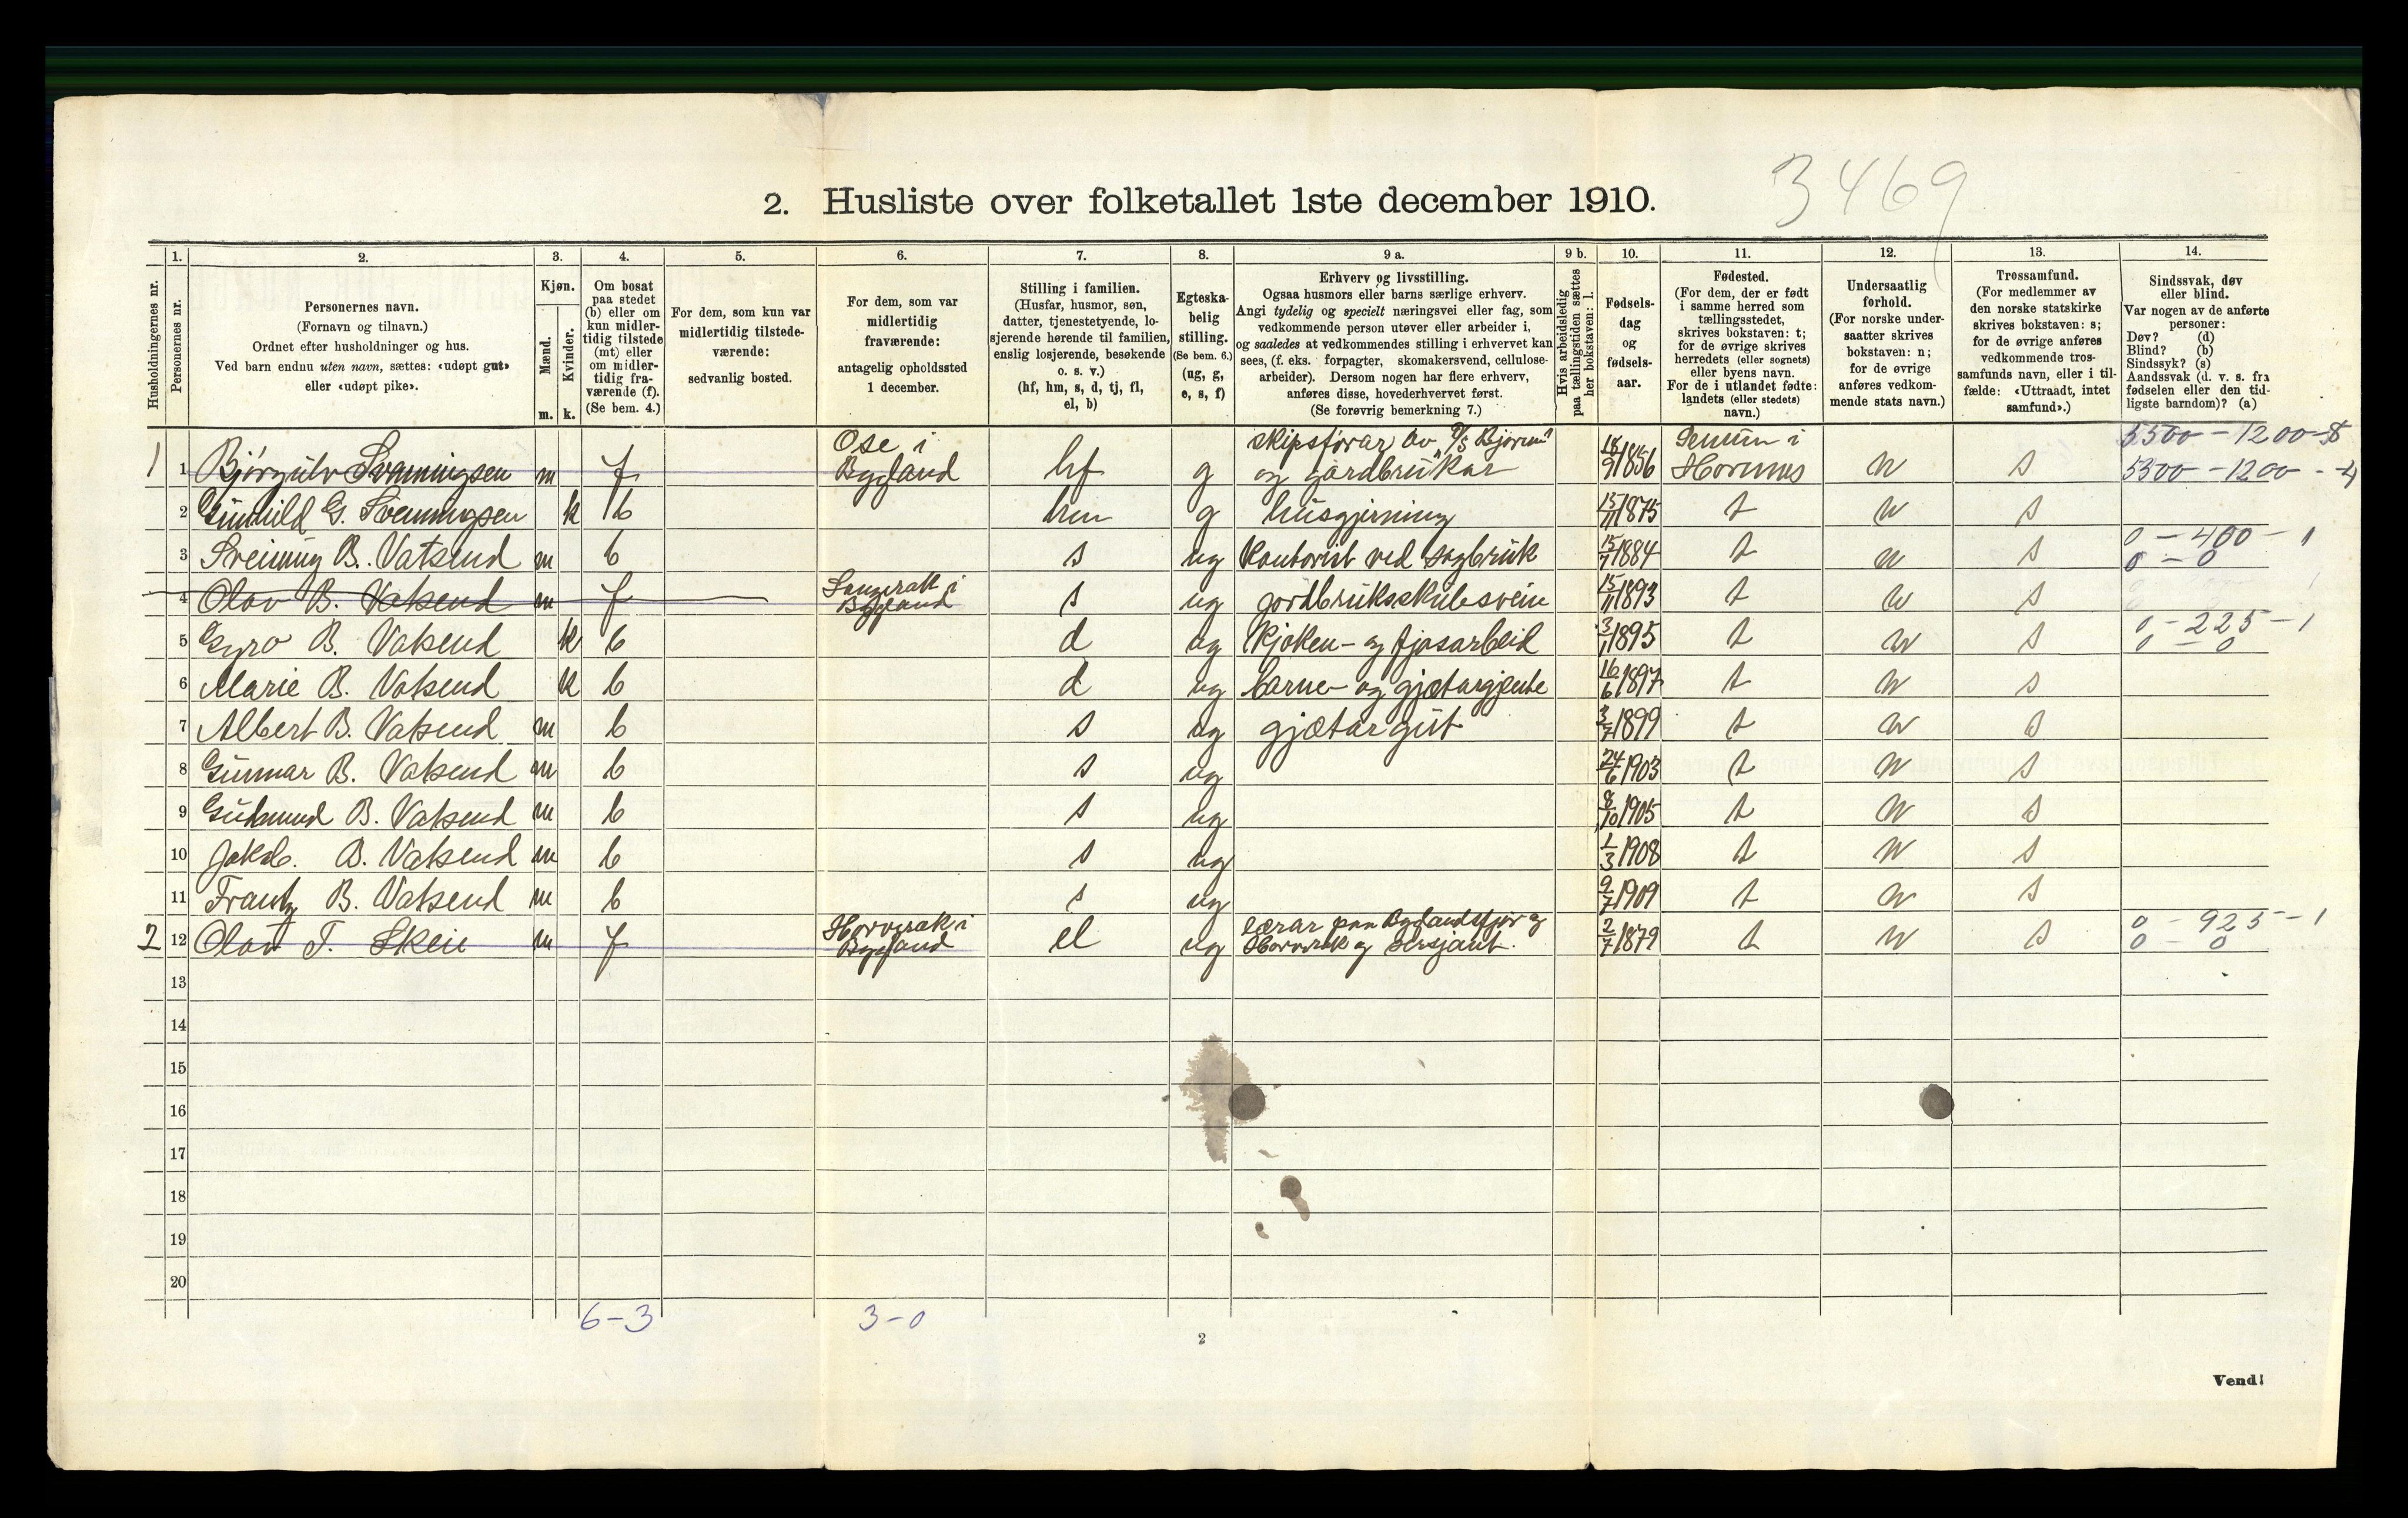 3469
2. Husliste over folketallet 1ste december 1910.
Husholdningernes nr.
1.
Personernes nr.
2.
Personernes navn.
(Fornavn og tilnavn.)
Ordnet efter husholdninger og hus.
Ved barn endnu uten navn, sættes: «udøpt gut»
eller «udøpt pike».
3.
Kjøn.
Mænd.
Kvinder.
m. k.
4.
Om bosat
paa stedet
(b) eller om
kun midler-
tidig tilstede
(mt) eller
om midler-
tidig fra-
værende (f).
(Se bem. 4.)
5.
For dem, som kun var
midlertidig tilstede-
værende:
sedvanlig bosted.
6.
For dem, som var
midlertidig
fraværende:
antagelig opholdssted
1 december.
7.
Stilling i familien.
(Husfar, husmor, søn,
datter, tjenestetyende, lo-
sjerende hørende til familien,
enslig losjerende, besøkende
o. s. v.)
(hf, hm, s, d, tj, fl,
el, b)
8.
Egteska-
belig
stilling.
(Se bem. 6.)
(ug, g,
e, s, f)
9 a.
Erhverv og livsstilling.
Ogsaa husmors eller barns særlige erhverv.
Angi tydelig og specielt næringsvei eller fag, som
vedkommende person utøver eller arbeider i,
og saaledes at vedkommendes stilling i erhvervet kan
sees, (f. eks. forpagter, skomakersvend, cellulose-
arbeider). Dersom nogen har flere erhverv,
anføres disse, hovederhvervet først.
(Se forøvrig bemerkning 7.)
9 b.
Hvis arbeidsledig
paa tællingstiden sættes
her bokstaven: l.
10.
Fødsels-
dag
og
fødsels-
aar.
11.
Fødested.
(For dem, der er født
i samme herred som
tællingsstedet,
skrives bokstaven: t;
for de øvrige skrives
herredets (eller sognets)
eller byens navn.
For de i utlandet fødte:
landets (eller stedets)
navn.)
12.
Undersaatlig
forhold.
(For norske under-
saatter skrives
bokstaven: n;
for de øvrige
anføres vedkom-
mende stats navn.)
13.
Trossamfund.
(For medlemmer av
den norske statskirke
skrives bokstaven: s;
for de øvrige anføres
vedkommende tros-
samfunds navn, eller i til-
fælde: «Uttraadt, intet
samfund».)
14.
Sindssvak, døv
eller blind.
Var nogen av de anførte
personer:
Døv? (d)
Blind? (b)
Sindssyk? (s)
Aandssvak (d. v. s. fra
fødselen eller den tid-
ligste barndom)? (a)
1 1 Bjørgulv Svenningsen m f Ose i Bygland hf g skipsførar av D/S Bjoren og gardbrukar 18/9 1856 Hornnes n s 5300-1200-4
2 Gunhild G. Svenningsen k b hm g husgjerning 15/11 1875 t n s
3 Sveinung B. Vatsend m b s ug Kontorist ved sagbruk 15/7 1884 t n s 0-400-1 0-0
4 Olav B. Vatsend m f Bygland s ug jordbruksskulesvein 15/11 1893 t n s
5 Gyro B. Vatsend k b d ug Kjøken- og fjosarbeid 3/1 1895 t n s 0-225-1 0-0
6 Marie B. Vatsend k b d ug barne- og gjætargjente 16/6 1897 t n s
7 Albert B. Vatsend m b s ug gjætargut 3/7 1899 t n s
8 Gunnar B. Vatsend m b s ug 24/6 1903 t n s
9 Gudmund B. Vatsend m b s ug 8/10 1905 t n s
10 Jakob. B. Vatsend m b s ug 1/3 1908 t n s
11 Frantz B. Vatsend m b s ug 9/7 1909 t n s
2 12 Olav T. Skeie m f Horverak i Bygland el ug lærar paa Byglandsfjor og Horverak og sersjant. 2/7 1879 t n s 0-925-1 0-0
13
14
15
16
17
18
19
20
6-3 3-0
2
Vend!